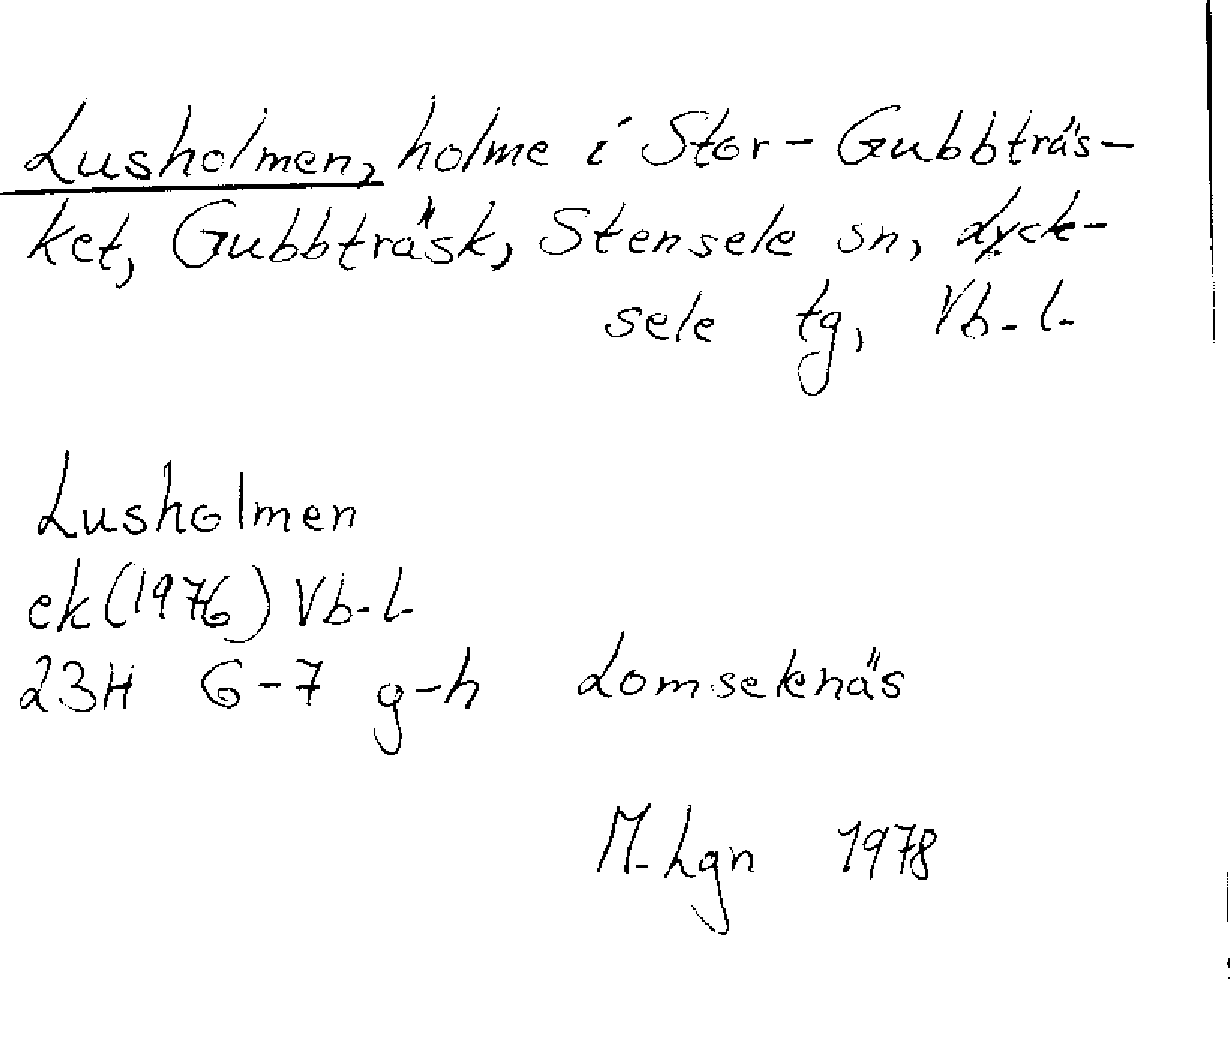 Lusholmen, holme i Stor-Gubbträs-
ket, Gubbträsk, Stensele sn, Lyck-
sele tg, Vb-L.
Lusholmen
ek(1976) Vb-L
23H 6-7 g-h Lomseknäs
M. Lgn 1978